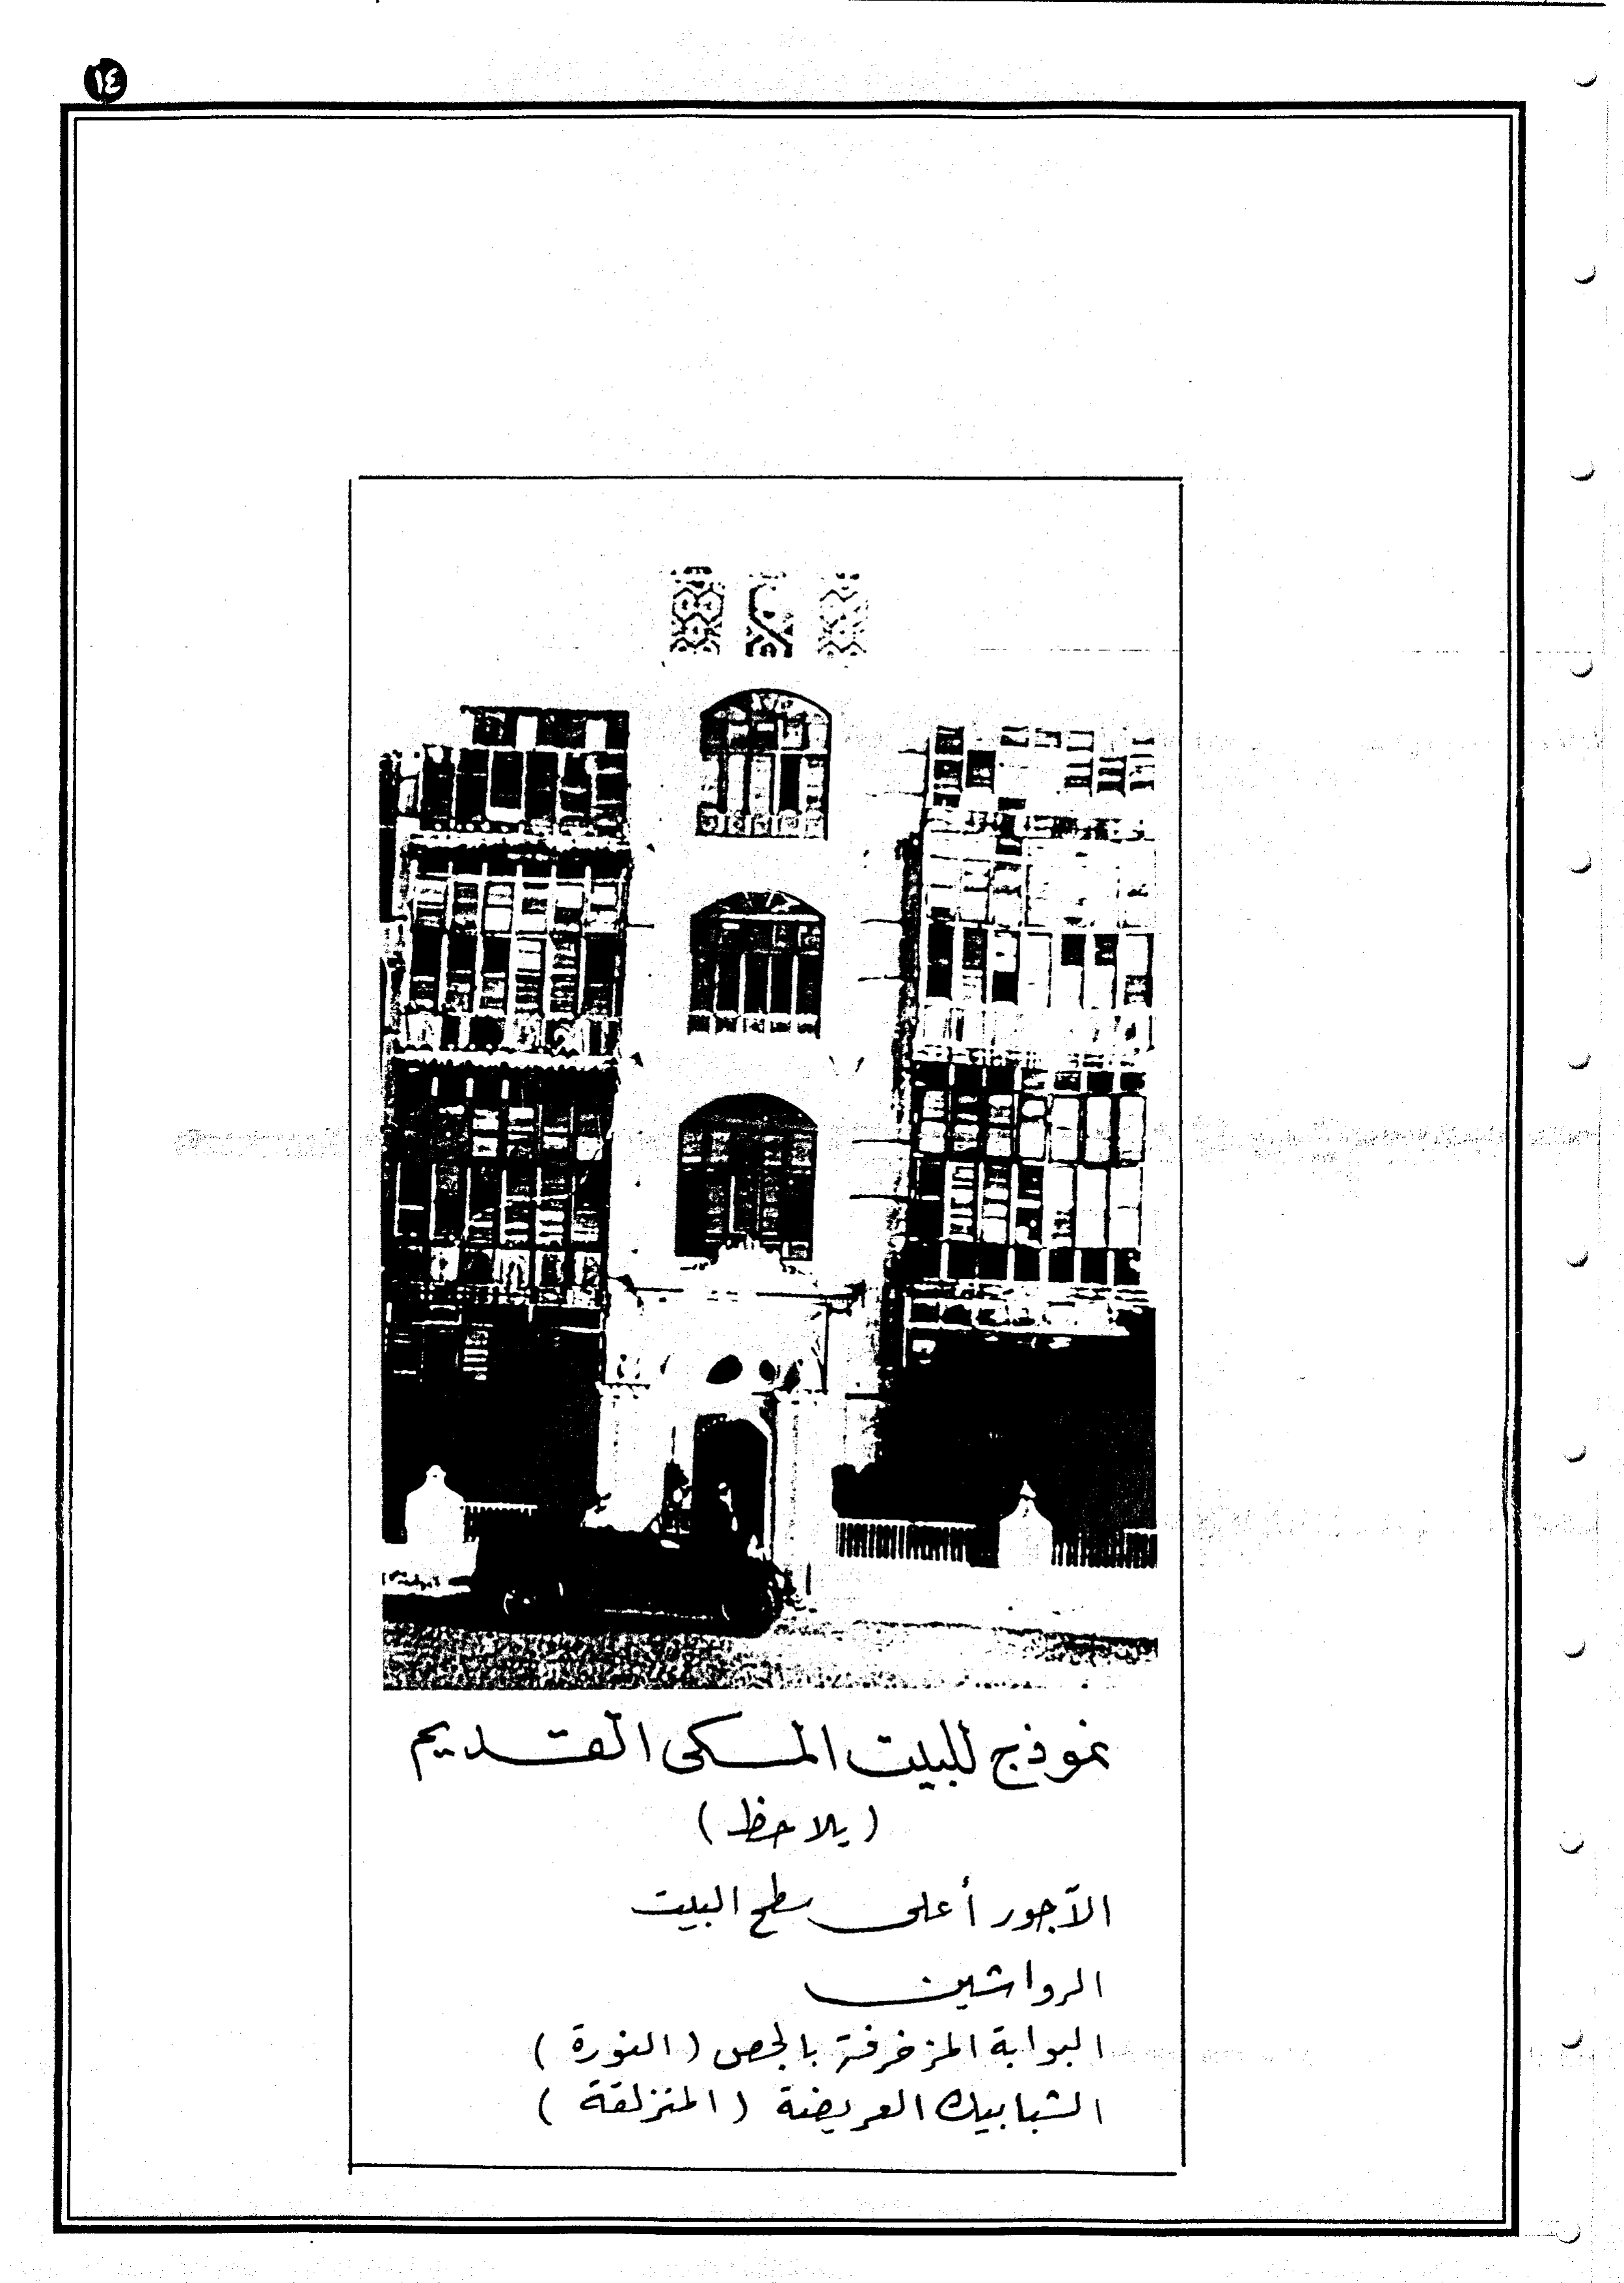 ١٤
نموذج للبيت المكى القديم
( يلاحظ )
الآجور أعلى سطح البيت
الرواشين
البوابة المزخرفة بالجص ( النورة )
الشبابيك العريضة ( المنزلقة )